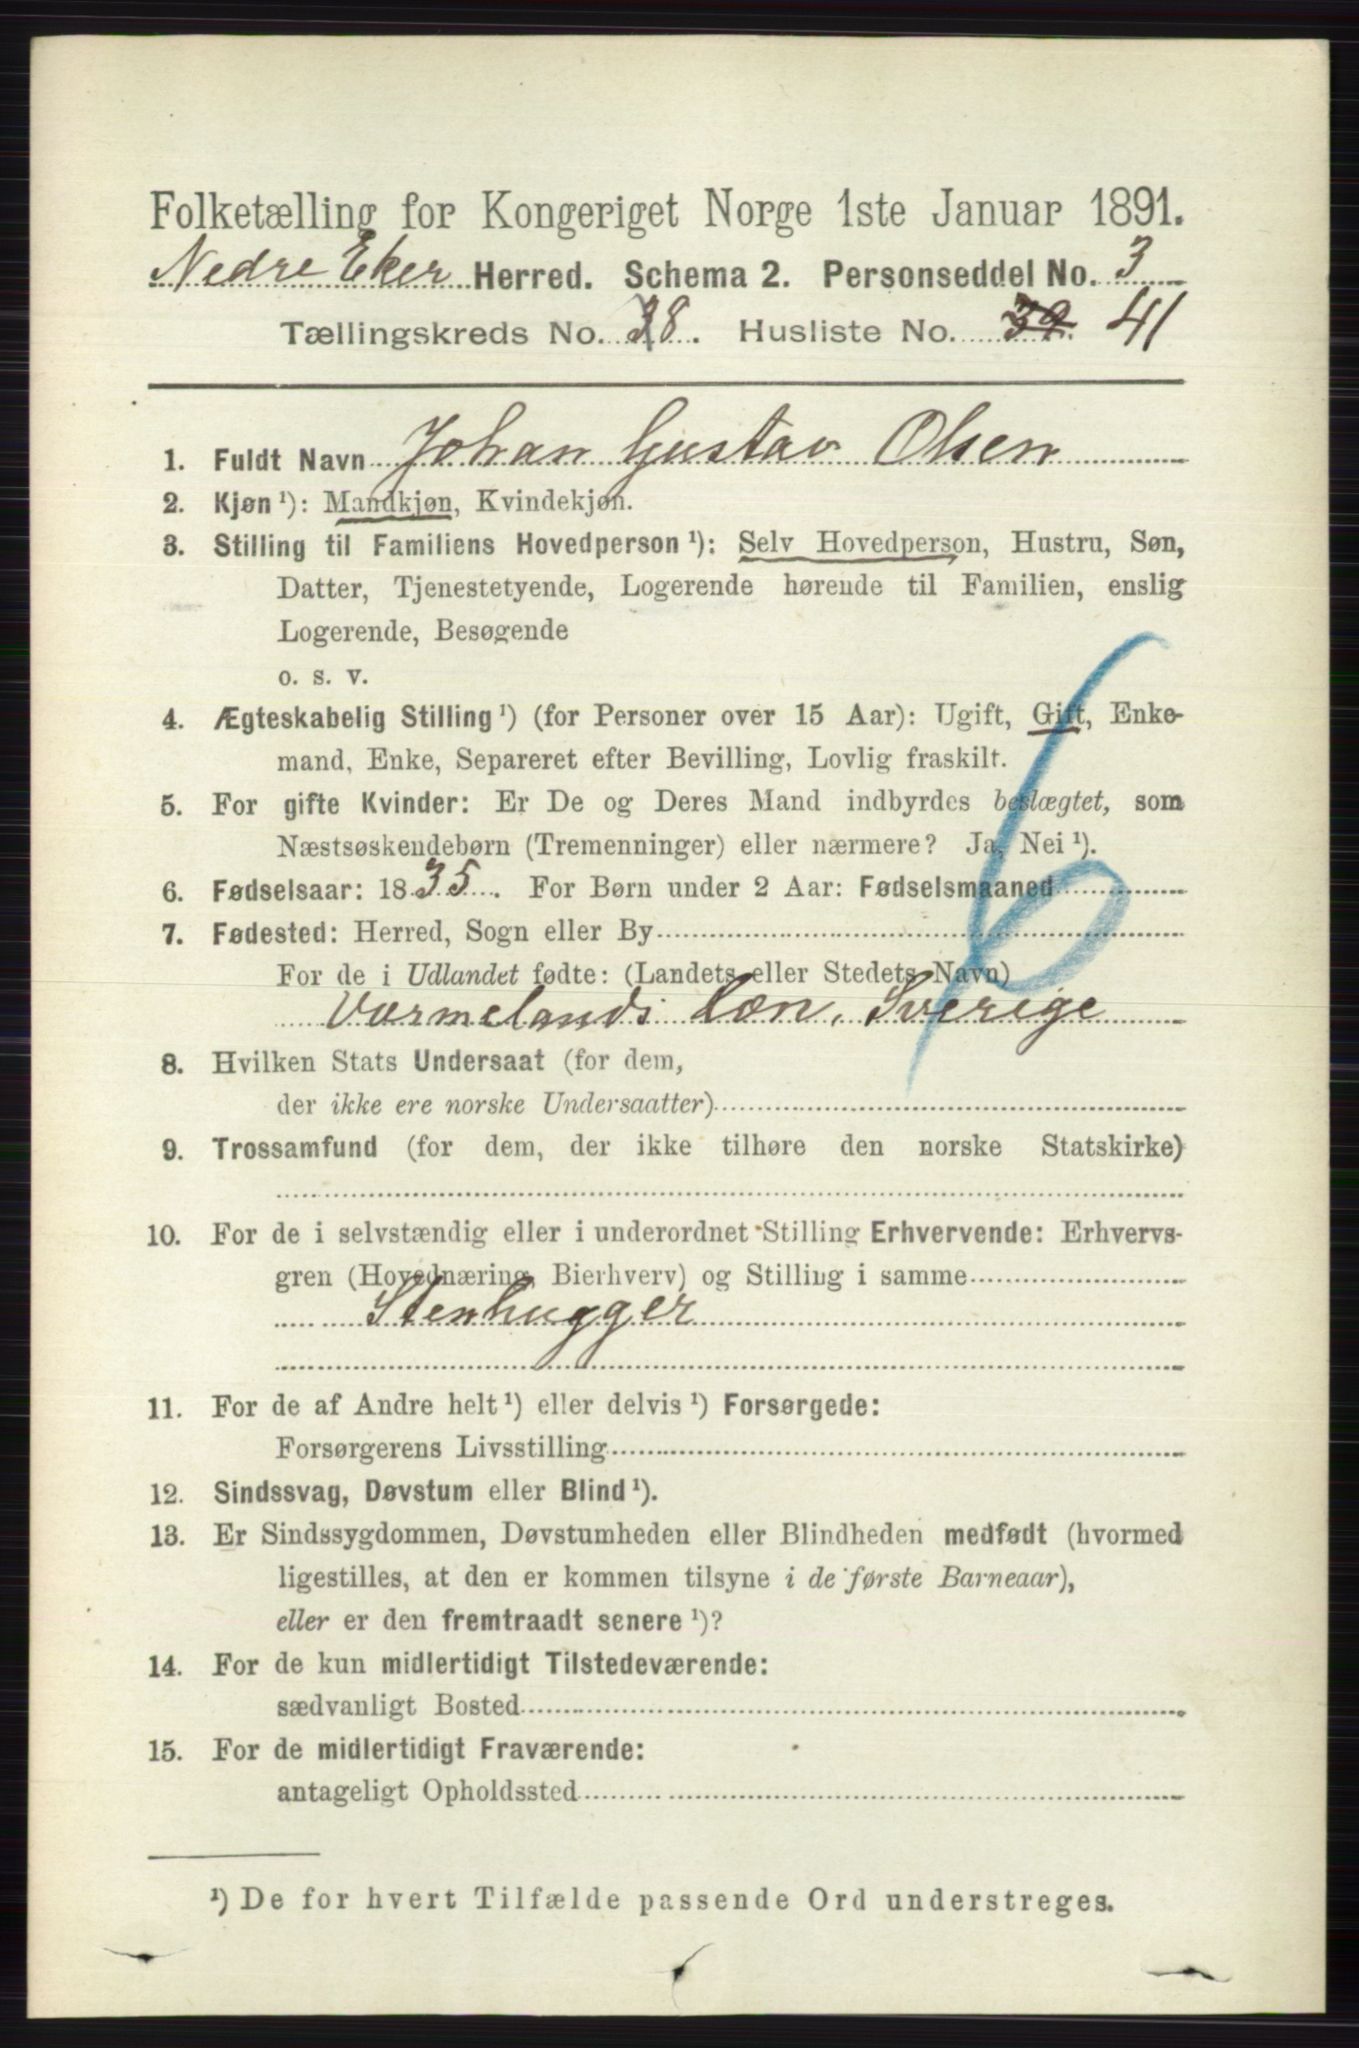 Folketælling for Kongeriget Norge 1ste Januar 1891.
Nedre Eker Herred. Schema 2. Personseddel No. 3
Tællingskreds No. 8. Husliste No. 39 41
1. Fuldt Navn Johan Gustav Olsen
2. Kjøn ¹): Mandkjøn, Kvindekjøn.
3. Stilling til Familiens Hovedperson ¹): Selv Hovedperson, Hustru, Søn,
Datter, Tjenestetyende, Logerende hørende til Familien, enslig
Logerende, Besøgende
o. s. v.
4. Ægteskabelig Stilling ¹) (for Personer over 15 Aar): Ugift, Gift, Enke-
mand, Enke, Separeret efter Bevilling, Lovlig fraskilt.
5. For gifte Kvinder: Er De og Deres Mand indbyrdes beslægtet, som
Næstsøskendebørn (Tremenninger) eller nærmere? Ja, Nei ¹).
6. Fødselsaar: 1835. For Børn under 2 Aar: Fødselsmaaned
7. Fødested: Herred, Sogn eller By
For de i Udlandet fødte: (Landets eller Stedets Navn)
Værmelands Læn, Sverige
8. Hvilken Stats Undersaat (for dem,
der ikke ere norske Undersaatter)
9. Trossamfund (for dem, der ikke tilhøre den norske Statskirke)
10. For de i selvstændig eller i underordnet Stilling Erhvervende: Erhvervs-
gren (Hovednæring, Bierhverv) og Stilling i samme
Stenhugger
11. For de af Andre helt ¹) eller delvis ¹) Forsørgede:
Forsørgerens Livsstilling
12. Sindssvag, Døvstum eller Blind ¹).
13. Er Sindssygdommen, Døvstumheden eller Blindheden medfødt (hvormed
ligestilles, at den er kommen tilsyne i de første Barneaar),
eller er den fremtraadt senere ¹)?
14. For de kun midlertidigt Tilstedeværende:
sædvanligt Bosted
15. For de midlertidigt Fraværende:
antageligt Opholdssted
¹) De for hvert Tilfælde passende Ord understreges.